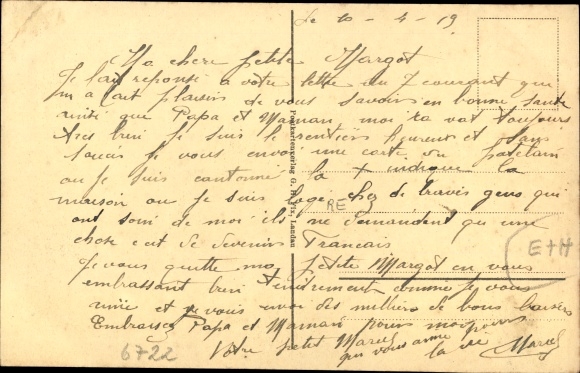 Le 10-4-19
Ma chere petite Margot
Je fait reponse a votre lettre du 7 courant qui
m a fait plaisir de vous savoir en bonne sante
ainsi que Papa et Maman moi sa vat toujours
tres bien je suis le rentiers heureux et sans
soucis je vous envoi une carte du patelain
ou je suis cantonne la + indique la
maison ou je suis loge chez de braves gens qui
ont soin de moi ils ne demandent qu une
chose c est de devenir Francais
Je vous quitte ma petite Margot en vous
embrassant bien tendrement comme je vous
aime et je vous envoi des milliers de bons baisers
Embrassez Papa et Maman pour moi
Votre petit Marcel
qui vous aime pour
la vie Marcel
Postkartenverlag G. Landau
RE
E+H
6722